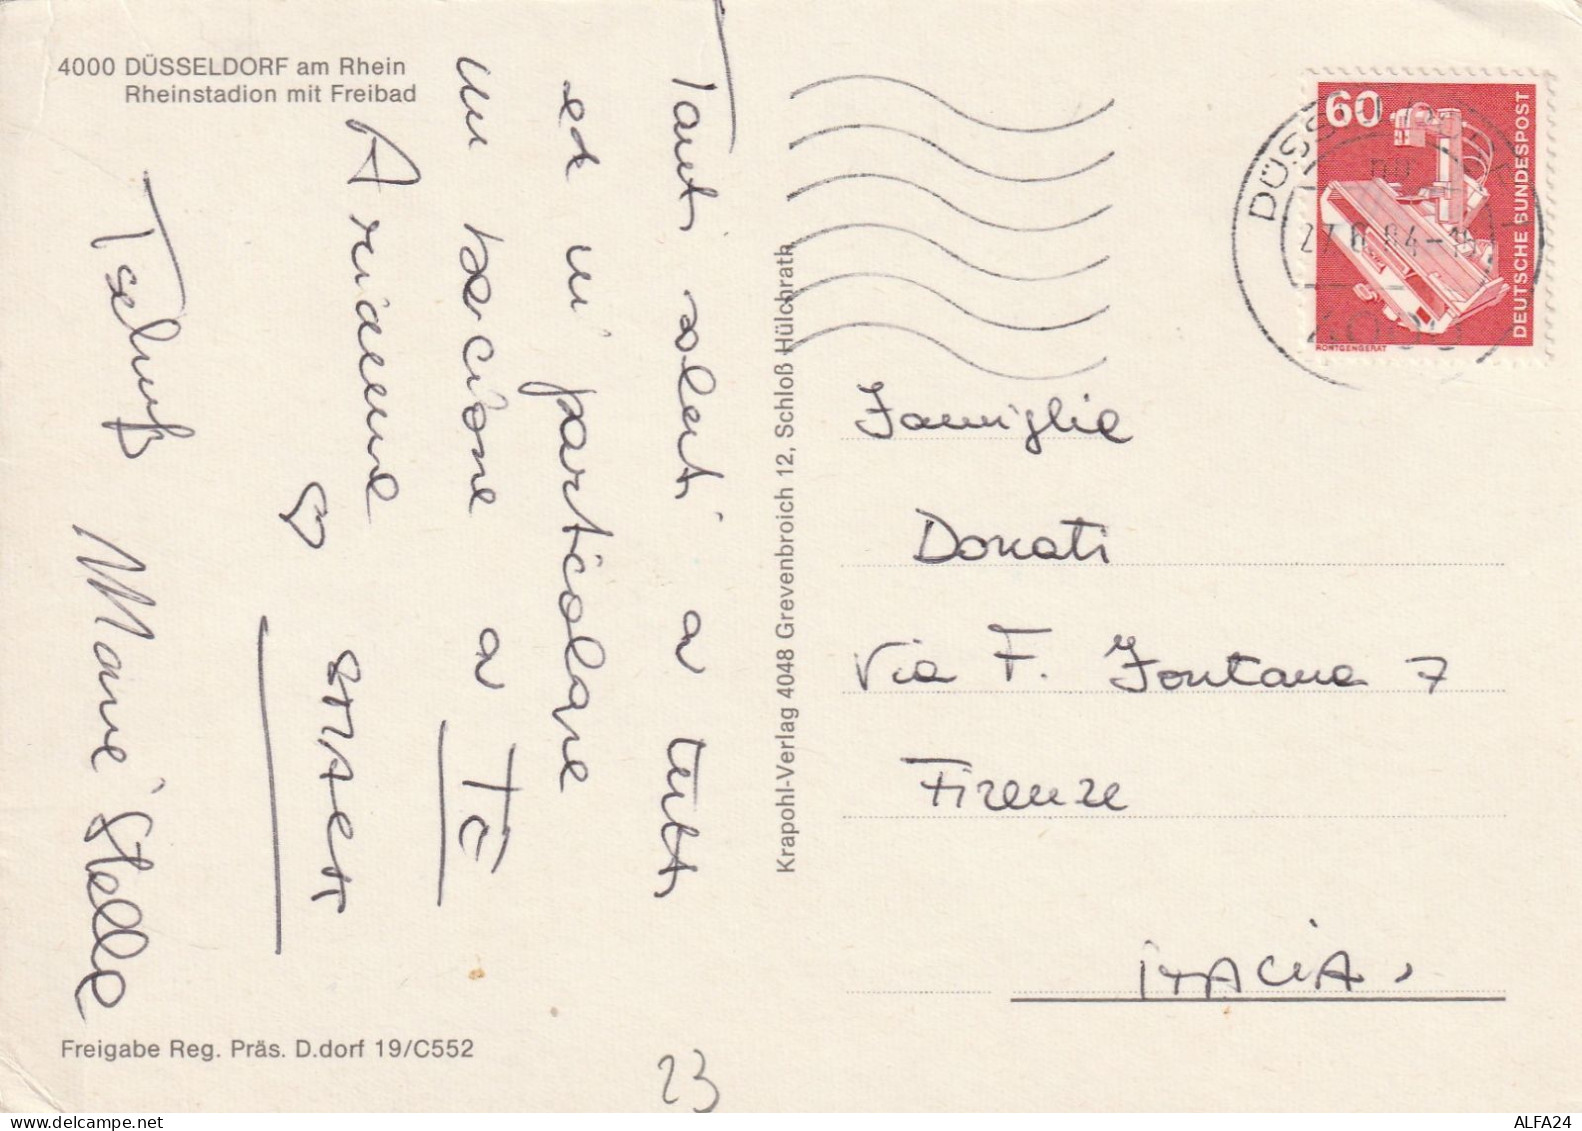 4000 DÜSSELDORF am Rhein
Rheinstadion mit Freibad
Tanti saluti a tutti
ed in particolare
un bacione a TE
Arianna
♡
Marie Stella
Freigabe Reg. Präs. D.dorf 19/C552
Krapohl-Verlag 4048 Grevenbroich 12, Schloß Hülchrath
60
DEUTSCHE BUNDESPOST
RÖNTGENGERÄT
27.6.84-15
Famiglia
Donati
Via F. Fontana 7
Firenze
ITALIA
23
ALFA24